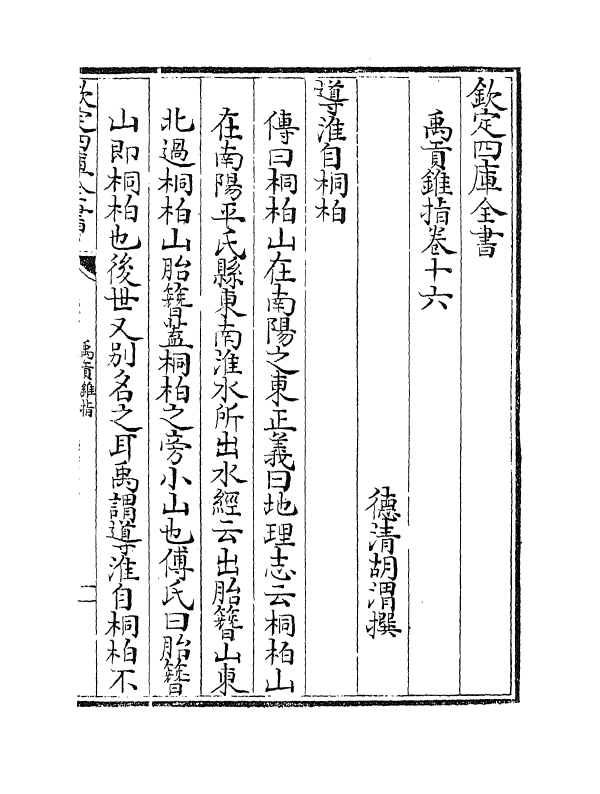 欽定四庫全書
禹貢錐指卷十六
德清胡渭撰
導淮自桐柏
傳曰桐柏山在南陽之東正義曰地理志云桐柏山
在南陽平氏縣東南淮水所出水經云出胎簪山東
北過桐柏山胎簪蓋桐柏之旁小山也傅氏曰胎簪
山即桐柏也後世又别名之耳禹謂導淮自桐柏不
欽定四庫全書
禹貢錐指
一